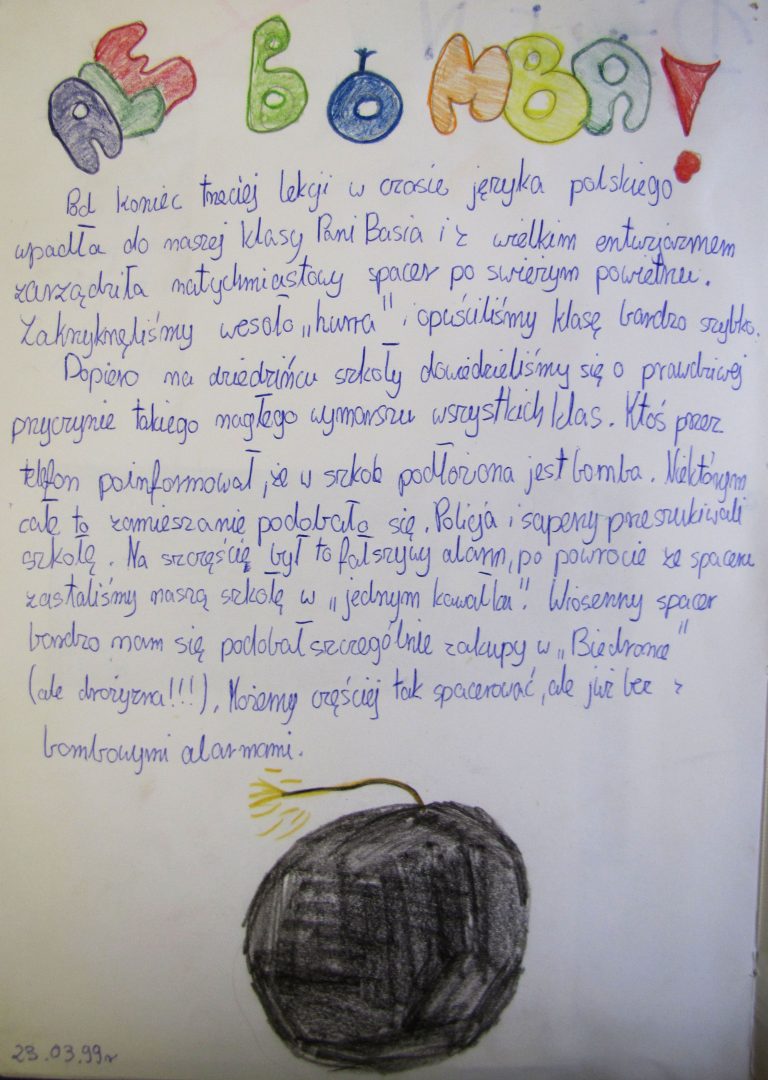 ALE BOMBA!
Pod koniec trzeciej lekcji w czasie języka polskiego
wpadła do naszej klasy Pani Basia i z wielkim entuzjazmem
zarządziła natychmiastowy spacer po świeżym powietrzu.
Zakrzyknęliśmy wesoło „hurra” i opuściliśmy klasę bardzo szybko.
Dopiero na dziedzińcu szkoły dowiedzieliśmy się o prawdziwej
przyczynie takiego nagłego wymarszu wszystkich klas. Ktoś przez
telefon poinformował, że w szkole podłożona jest bomba. Niektórym
całe to zamieszanie podobało się. Policja i saperzy przeszukiwali
szkołę. Na szczęście był to fałszywy alarm, po powrocie ze spaceru
zastaliśmy naszą szkołę w „jednym kawałku”. Wiosenny spacer
bardzo nam się podobał szczególnie zakupy w „Biedronce”
(ale drożyzna!!!). Możemy częściej tak spacerować, ale już bez
bombowymi alarmami.
23.03.99r